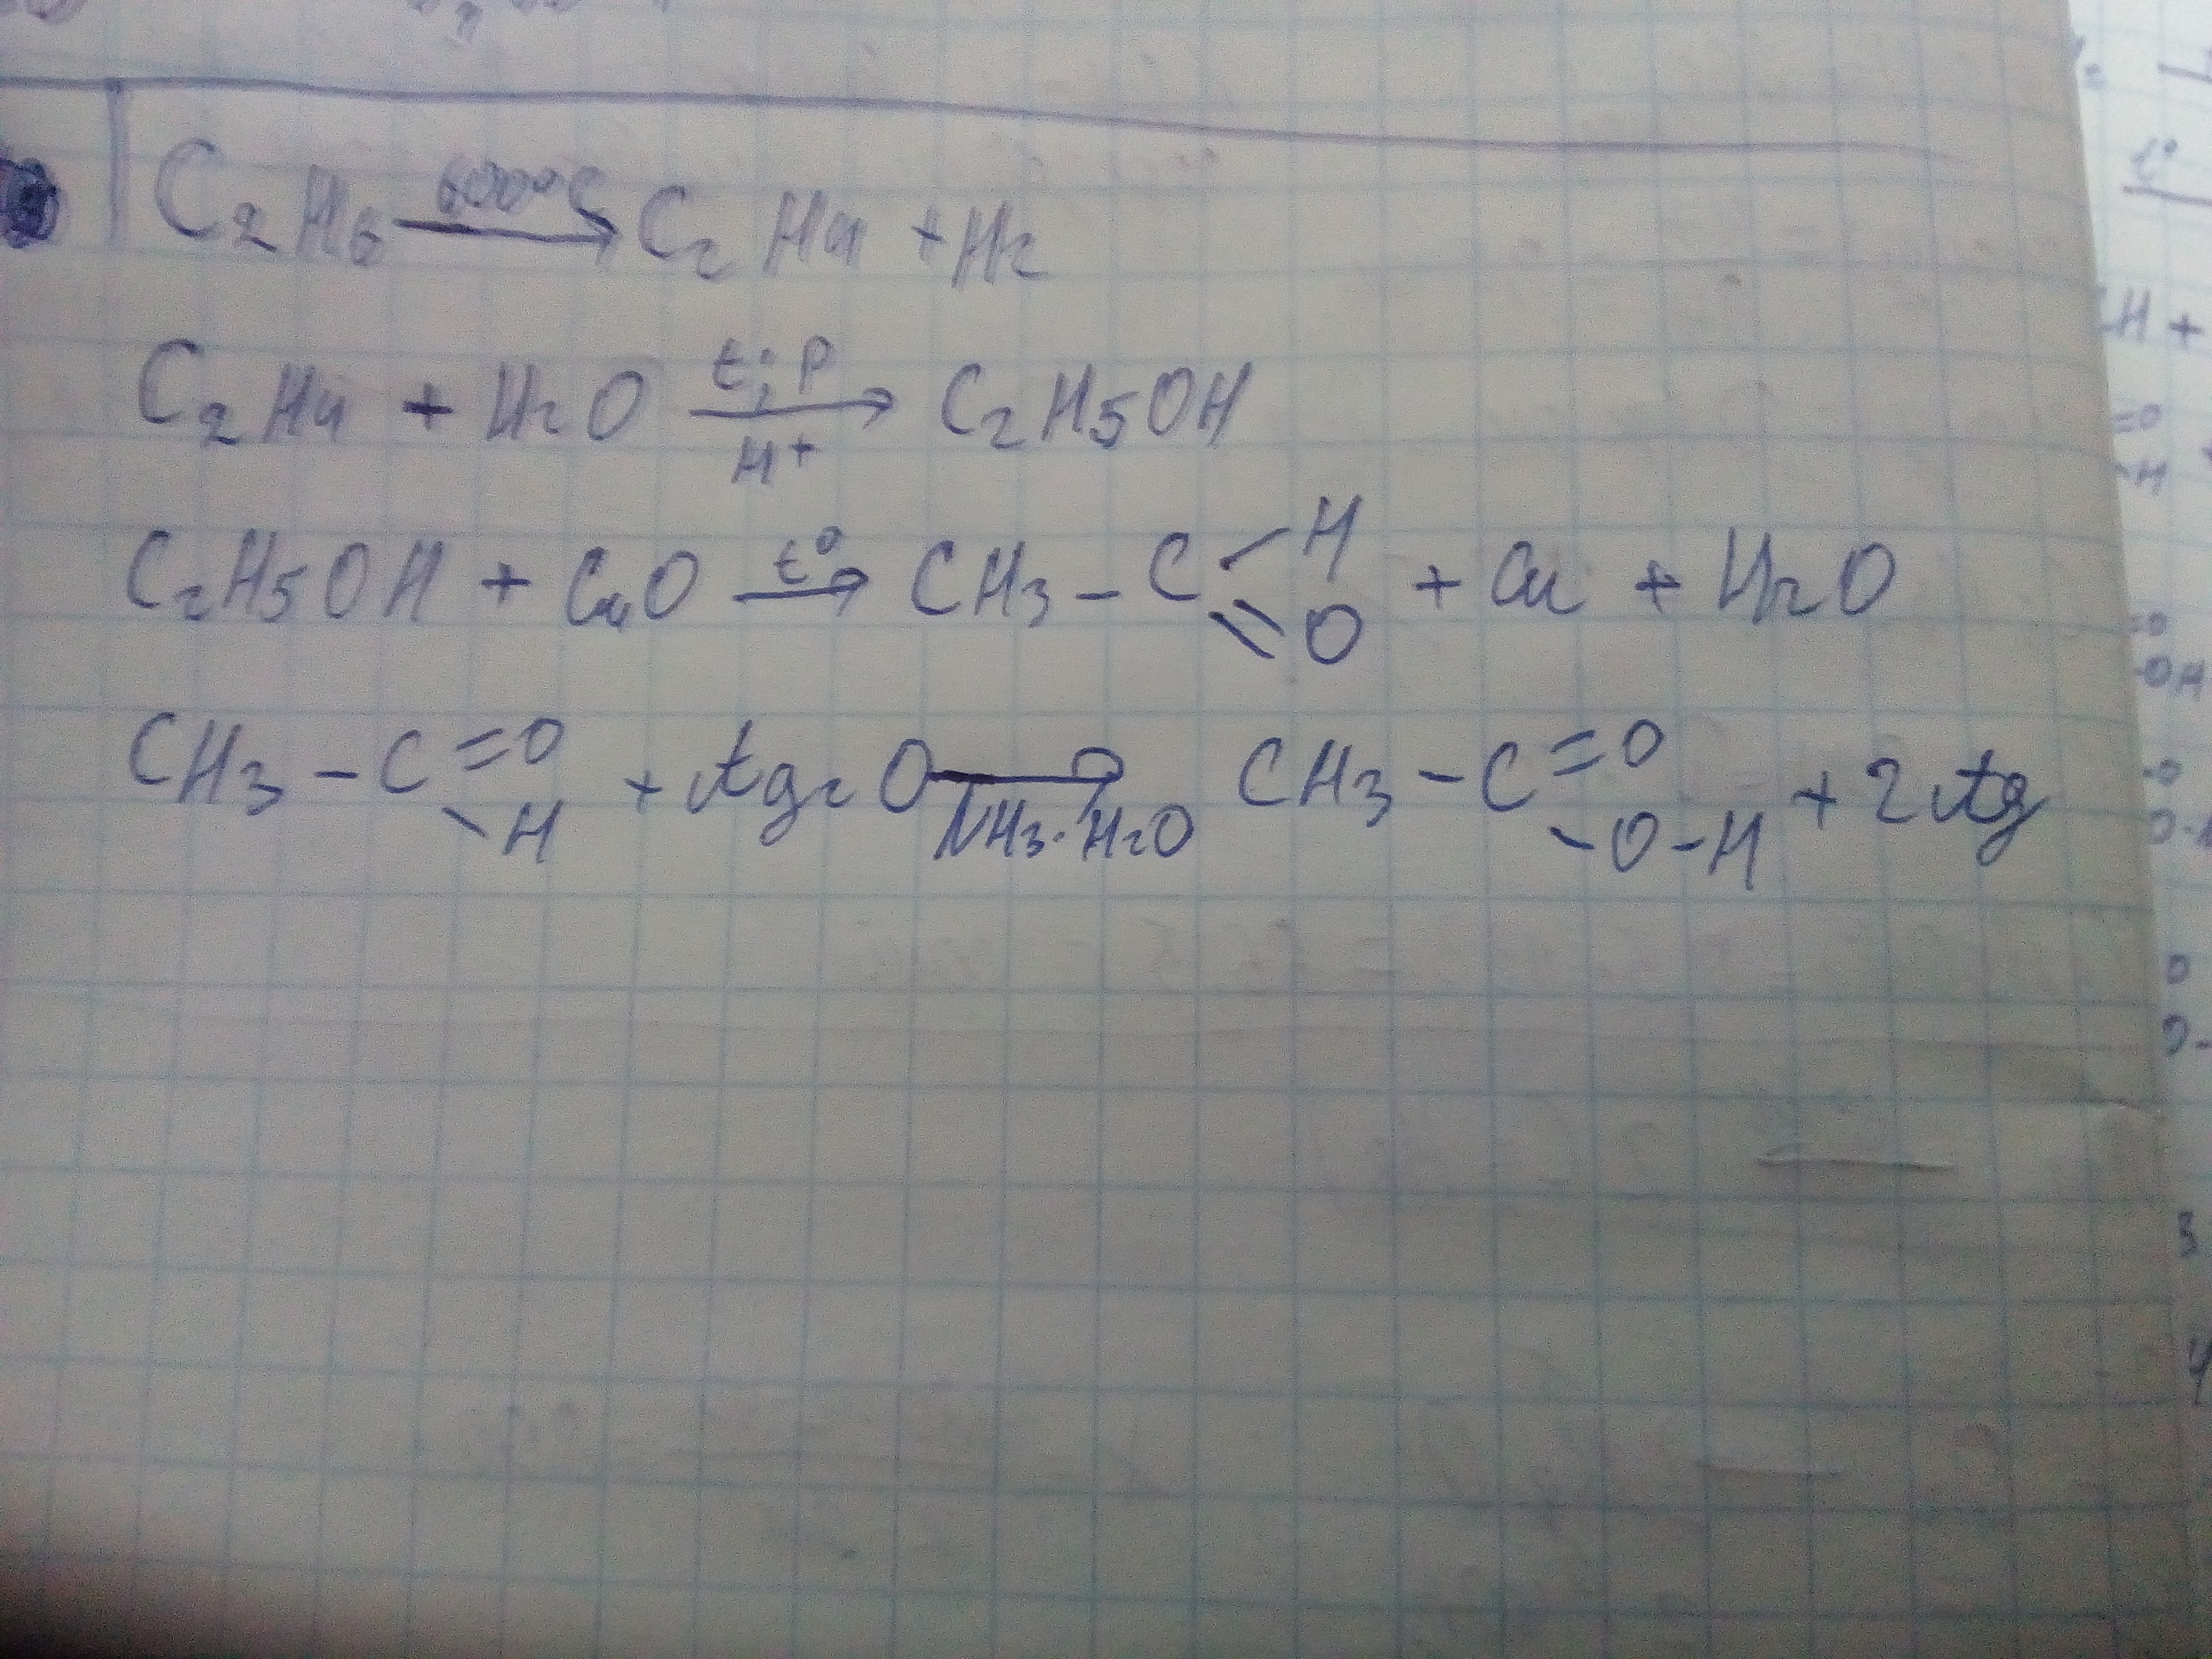 C₂H₆ 600°C → C₂H₄ + H₂
C₂H₄ + H₂O t°; P → H⁺ C₂H₅OH
C₂H₅OH + CuO t° → CH₃ – C – H = O + Cu + H₂O
CH₃ – C = O – H + Ag₂O → NH₃·H₂O CH₃ – C = O – O – H + 2Ag